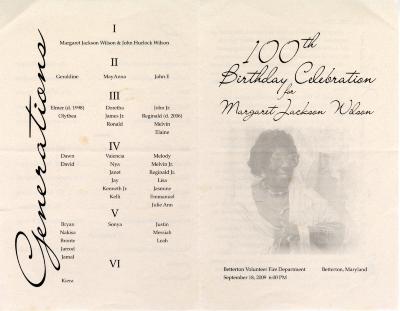 Generations
I
Margaret Jackson Wilson & John Hurlock Wilson
II
Geraldine MayAnna John E
III
Elmer (d. 1998) Doretha John Jr.
Olythea James Jr. Reginald (d. 2006)
Ronald Melvin
Elaine
IV
Dawn Valencia Melody
David Nya Melvin Jr.
Janet Reginald Jr.
Jay Lisa
Kenneth Jr. Jasmine
Kelli Emmanuel
Julie Ann
V
Bryan Sonya Justin
Nakisa Messiah
Bronte Leah
Jarrod
Jamal
VI
Kiera
100th
Birthday Celebration
for
Margaret Jackson Wilson
Betterton Volunteer Fire Department Betterton, Maryland
September 18, 2009 6:00 PM